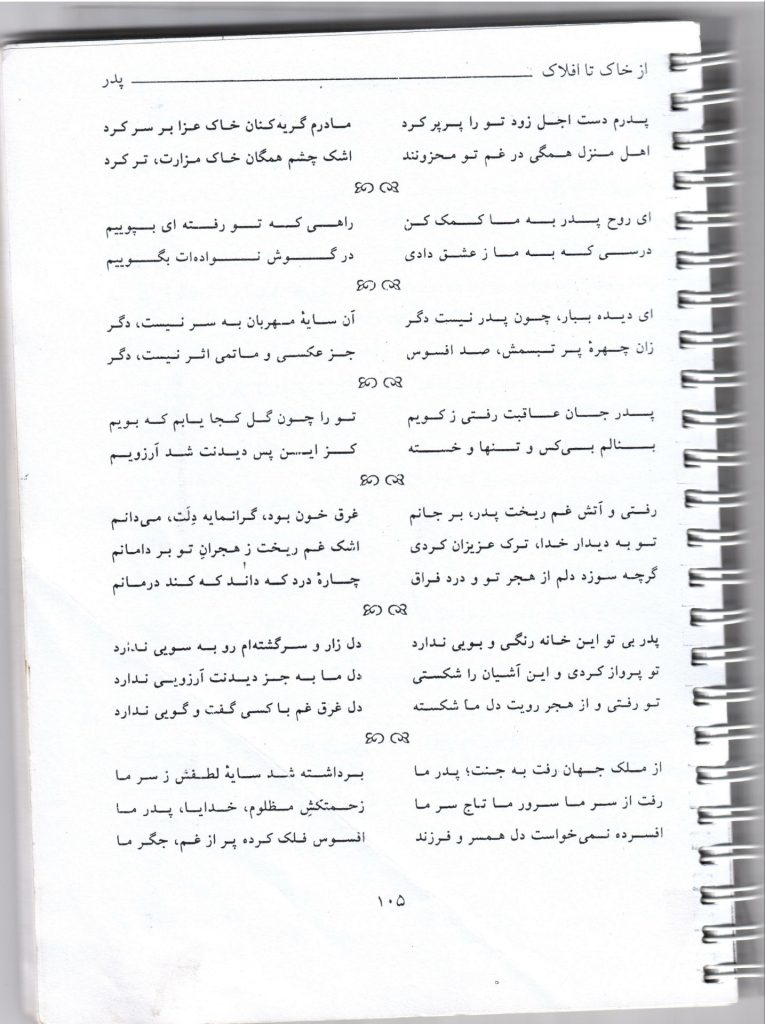 از خاک تا افلاک پدر
پدرم دست اجل زود تو را پرپر کرد مادرم گریه‌کنان خاک عزا بر سر کرد
اهل منزل همگی در غم تو محزونند اشک چشم همگان خاک مزارت، تر کرد
ای روح پدر به ما کمک کن راهی که تو رفته ای بپوییم
درسی که به ما ز عشق دادی در گوش نواده‌ات بگوییم
ای دیده ببار، چون پدر نیست دگر آن سایهٔ مهربان به سر نیست، دگر
زان چهرهٔ پر تبسمش، صد افسوس جز عکسی و ماتمی اثر نیست، دگر
پدر جان عاقبت رفتی ز کویم تو را چون گل کجا یابم که بویم
بنالم بی‌کس و تنها و خسته کز این پس دیدنت شد آرزویم
رفتی و آتش غم ریخت پدر، بر جانم غرق خون بود، گرانمایه دِلَت، می‌دانم
تو به دیدار خدا، ترک عزیزان کردی اشک غم ریخت ز هجرانِ تو بر دامانم
گرچه سوزد دلم از هجر تو و درد فراق چارهٔ درد که داند که کند درمانم
پدر بی تو این خانه رنگی و بویی ندارد دل زار و سرگشته‌ام رو به سویی ندارد
تو پرواز کردی و این آشیان را شکستی دل ما به جز دیدنت آرزویی ندارد
تو رفتی و از هجر رویت دل ما شکسته دل غرق غم با کسی گفت و گویی ندارد
از ملک جهان رفت به جنت؛ پدر ما برداشته شد سایهٔ لطفش ز سر ما
رفت از سر ما سرور ما تاج سر ما زحمتکشِ مظلوم، خدایا، پدر ما
افسرده نمی‌خواست دل همسر و فرزند افسوس فلک کرده پر از غم، جگر ما
۱۰۵